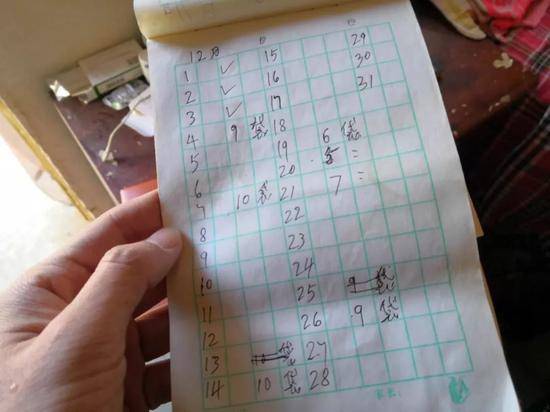 12月 日 日
1 ✓ 15 29
2 ✓ 16 30
3 ✓ 17 31
4 9 袋 18
5 19 6 袋
6 20 5 =
7 10 袋 21 7 =
8 22
9 23
10 24
11 25 9 袋
12 26 9 袋
13 袋 27
14 10 袋 28